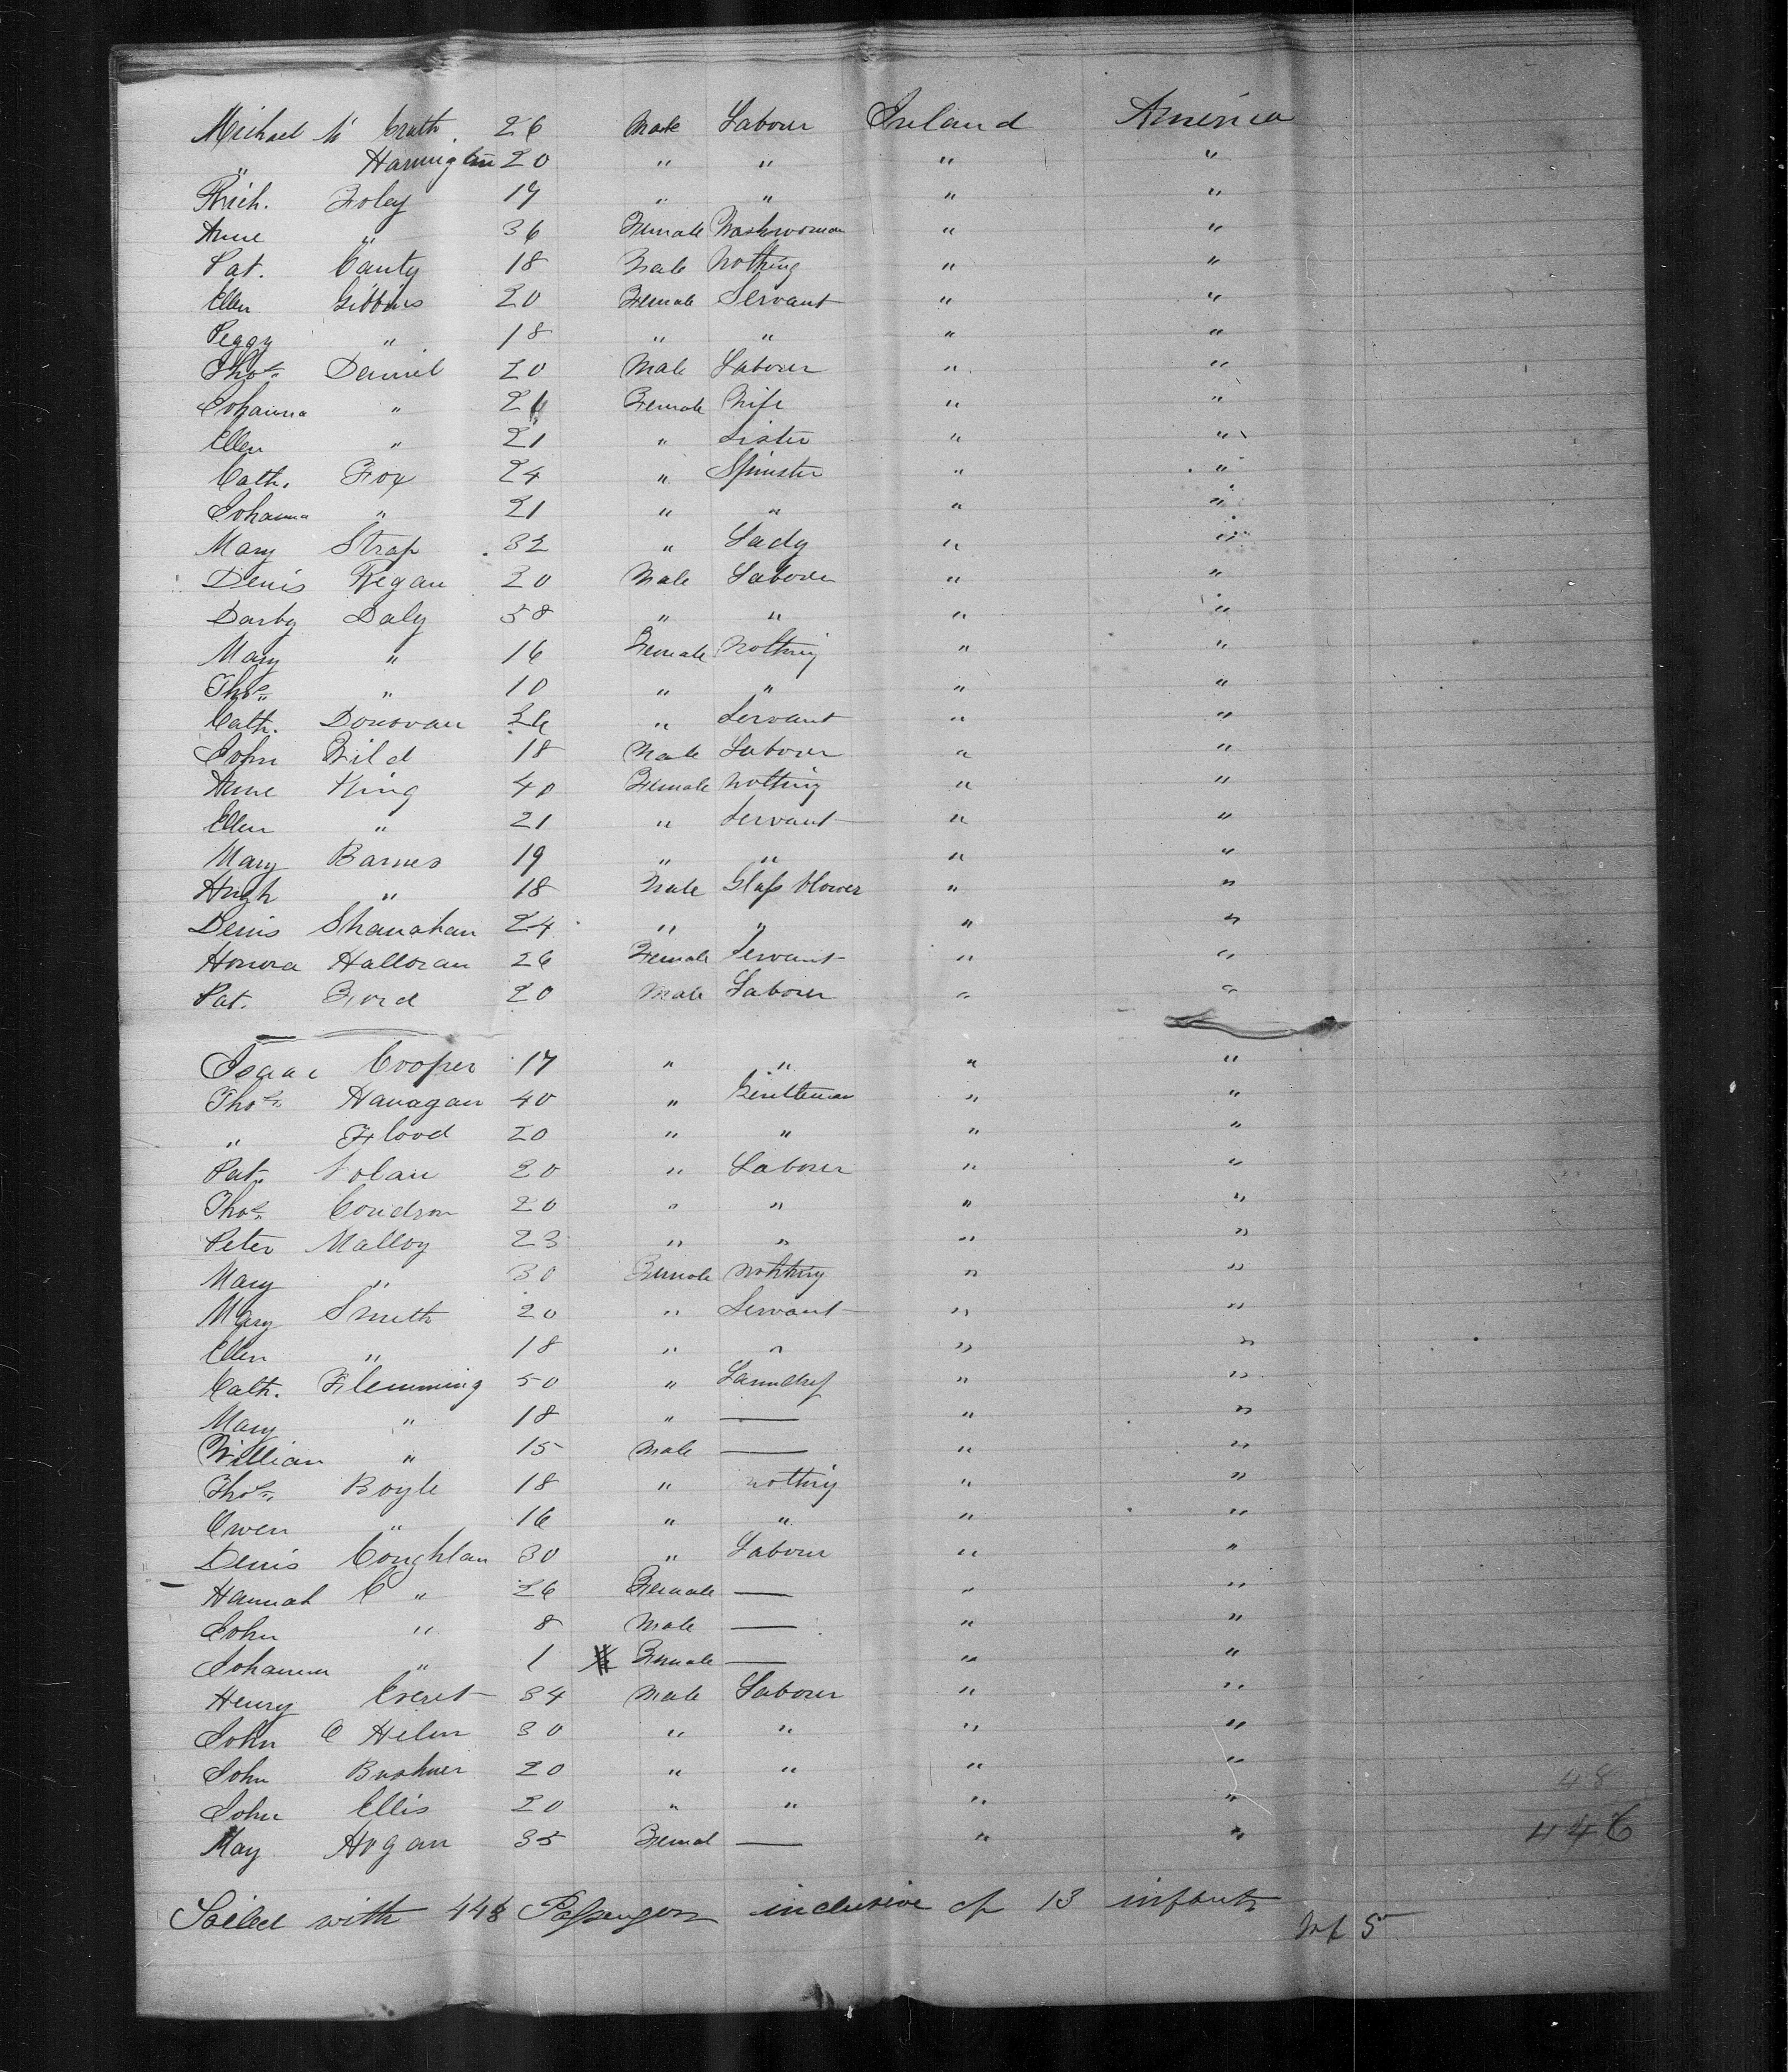 Michael Mc Crath 26 Male Labourer Ireland America
" Harrington 20 " " " "
Rich. Foley 17 " " " "
Anne " 36 Female Washwoman " "
Pat. Canty 18 Male Nothing " "
Ellen Gibbins 20 Female Servant " "
Peggy " 18 " " " "
Thos. Daniel 20 Male Laborer " "
Johanna " Female Wife " "
Ellen " 21 " Sister " "
Cath. Fox 24 " Spinster " "
Johanna " 21 " " " "
Mary Strap 32 " Lady " "
Denis Regan 20 Male Laborer " "
Darby Daly 58 " " " "
Mary " 16 Female Nothing " "
Thos. " 10 " " " "
Cath. Donovan " Servant " "
John 18 Male Laborer " "
Anne King 40 Female Nothing " "
Ellen " 21 " Servant " "
Mary Barnes 19 " " " "
Hugh " 18 Male Glass blower " "
Denis Shanahan 24 " " " "
Honora Halloran 26 Female Servant " "
Pat. Ford 20 Male Laborer " "
Isaac Cooper 17 " " " "
Thos. Hanagan 40 " Gentleman " "
" Flood 20 " " " "
Pat. Nolan 20 " Laborer " "
Thos. Condron 20 " " " "
Peter Malloy 23 " " " "
Mary " 30 Female Nothing " "
Mary Smith 20 " Servant " "
Ellen " 18 " " " "
Cath. Flemming 50 " " "
Mary " 18 " — " "
William " 15 Male — " "
Thos. Boyle 18 " nothing " "
Owen " 16 " " " "
Denis Coughlan 30 " Labourer " "
Hannah C " 26 Female — " "
John " 8 Male — " "
Johanna " 1 Female — " "
Henry Everet 34 Male Laborer " "
John O Helen 30 " " " "
John 20 " " " "
John Ellis 20 " " " "
48
May Hogan 35 Femal — " "
446
Sailed with 448 Passengers inclusive of 13 infants
Inf 5